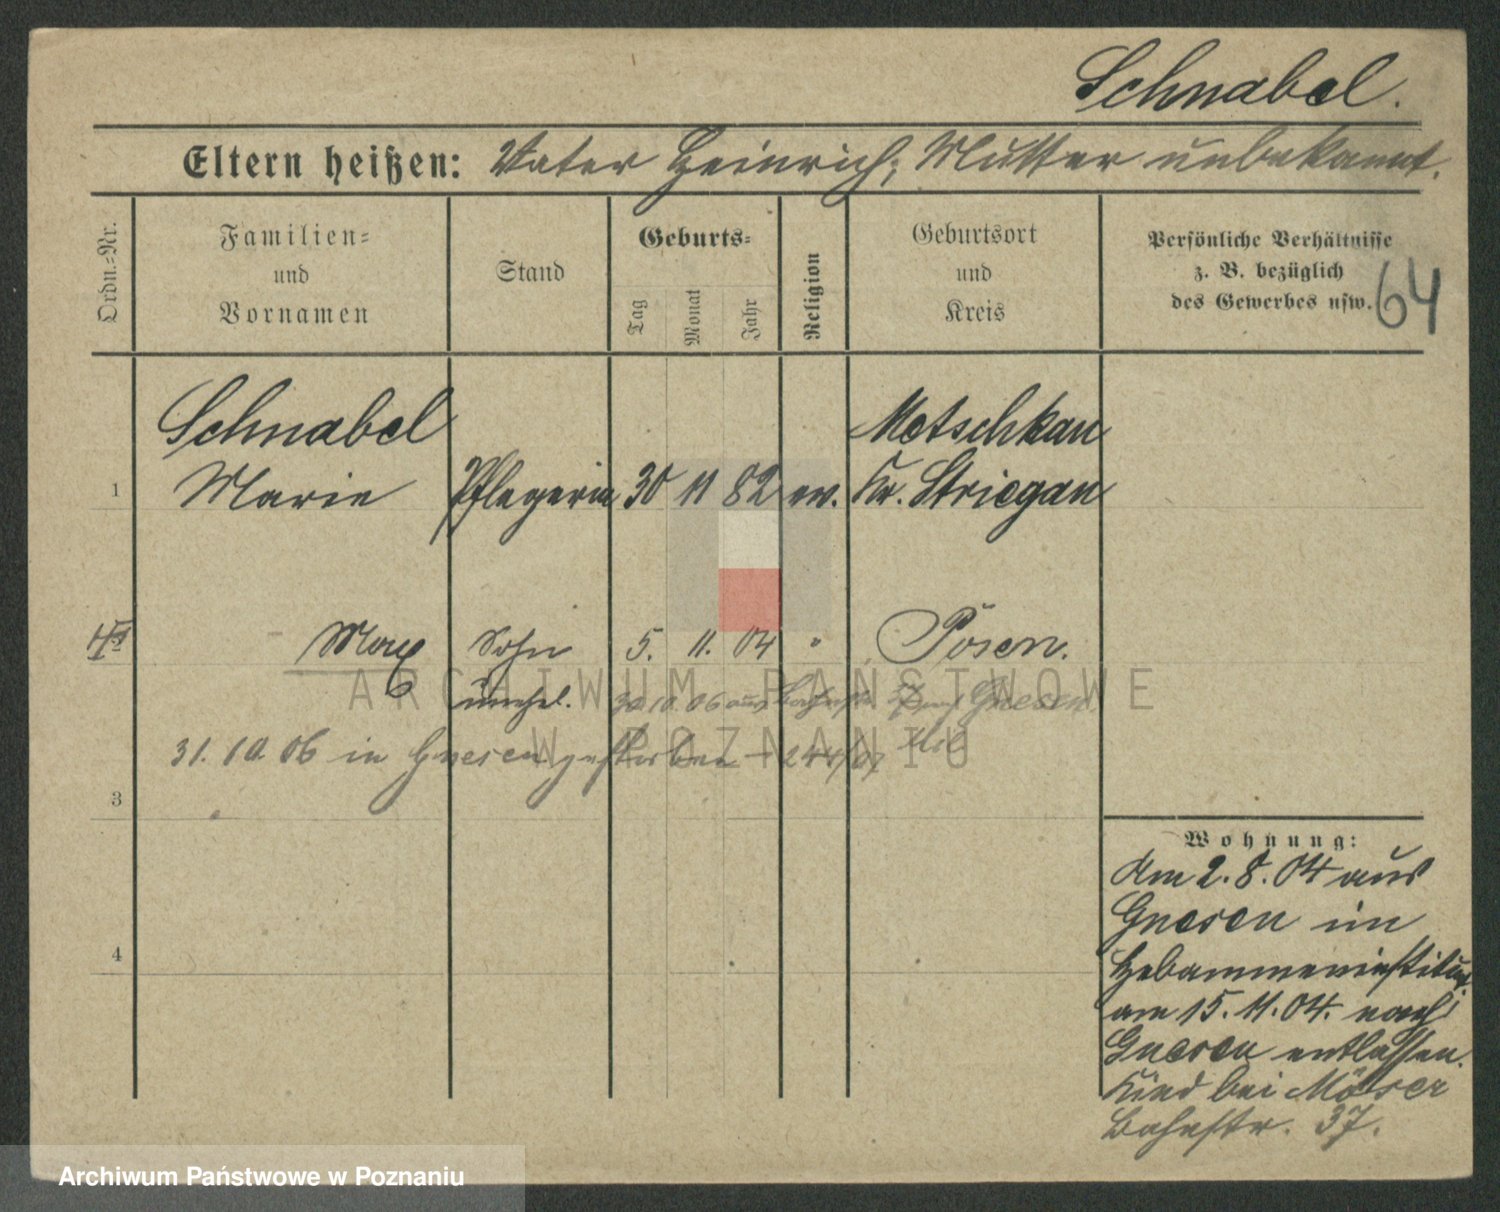 Schnabel.
Eltern heißen: Vater Heinrich; Mutter unbekannt.
Ordn.=Nr.
Familien=
und
Vornamen
Stand
Geburts=
Tag
Monat
Jahr
Religion
Geburtsort
und
Kreis
Persönliche Verhältnisse
z. B. bezüglich
des Gewerbes usw.
64
Schnabel Metschkau
1 Marie Pflegerin 30 11 82 ev. Kr. Striegau
Max Sohn 5. 11. 04 " Posen.
unehl. 30.10.06 aus Gnesen
31. 10. 06 in Gnesen gestorben
3
4
Wohnung:
Am 2. 8. 04 aus
Gnesen im
Hebammeninstitut
am 15. 11. 04. nach
Gnesen entlassen.
Kind bei Möser
Bahnstr. 37.
ARCHIWUM PAŃSTWOWE
W POZNANIU
Archiwum Państwowe w Poznaniu